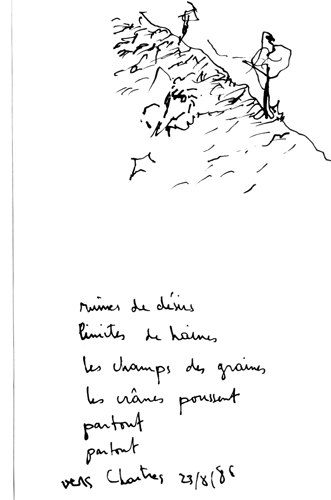 ruines de désirs
limites de haines
les champs des graines
les crânes poussent
partout
partout
vers Chartres 23/8/86